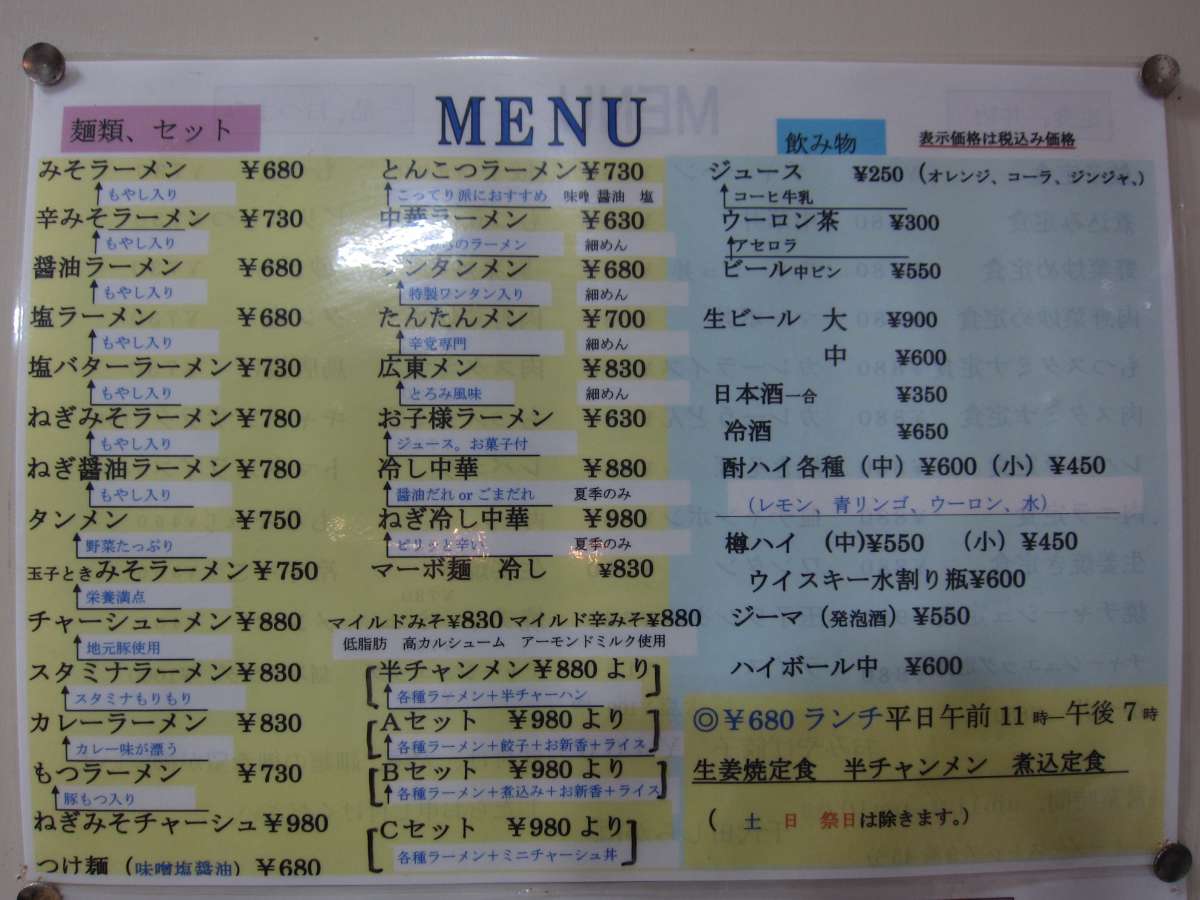 MENU
麺類、セット
みそラーメン ¥680
もやし入り
辛みそラーメン ¥730
もやし入り
醤油ラーメン ¥680
もやし入り
塩ラーメン ¥680
もやし入り
塩バターラーメン ¥730
もやし入り
ねぎみそラーメン ¥780
もやし入り
ねぎ醤油ラーメン ¥780
もやし入り
タンメン ¥750
野菜たっぷり
玉子ときみそラーメン ¥750
栄養満点
チャーシューメン ¥880
地元豚使用
スタミナラーメン ¥830
スタミナもりもり
カレーラーメン ¥830
カレー味が漂う
もつラーメン ¥730
豚もつ入り
ねぎみそチャーシュ ¥980
つけ麺(味噌塩醤油)¥680
とんこつラーメン ¥730
こってり派におすすめ 味噌 醤油 塩
中華ラーメン ¥630
のラーメン 細めん
ンタンメン ¥680
特製ワンタン入り 細めん
たんたんメン ¥700
辛党専門 細めん
広東メン ¥830
とろみ風味 細めん
お子様ラーメン ¥630
ジュース。お菓子付
冷し中華 ¥880
醤油だれ or ごまだれ 夏季のみ
ねぎ冷し中華 ¥980
ピリッと辛い 夏季のみ
マーボ麺 冷し ¥830
マイルドみそ¥830 マイルド辛みそ¥880
低脂肪 高カルシューム アーモンドミルク使用
半チャンメン¥880より
各種ラーメン+半チャーハン
Aセット ¥980より
各種ラーメン+餃子+お新香+ライス
Bセット ¥980より
各種ラーメン+煮込み+お新香+ライス
Cセット ¥980より
各種ラーメン+ミニチャーシュ丼
飲み物
表示価格は税込み価格
ジュース ¥250(オレンジ、コーラ、ジンジャ、)
コーヒ牛乳
ウーロン茶 ¥300
アセロラ
ビール中ビン ¥550
生ビール 大 ¥900
中 ¥600
日本酒一合 ¥350
冷酒 ¥650
酎ハイ各種(中)¥600(小)¥450
(レモン、青リンゴ、ウーロン、水)
樽ハイ (中)¥550 (小)¥450
ウイスキー水割り瓶¥600
ジーマ(発泡酒)¥550
ハイボール中 ¥600
◎¥680ランチ平日午前11時―午後7時
生姜焼定食 半チャンメン 煮込定食
( 土 日 祭日は除きます。)